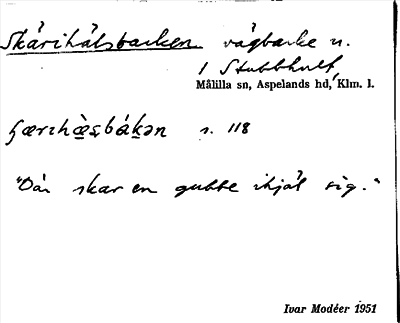 Skärihälsbacken vägbacke n.
1 Stubbhult
Målilla sn, Aspelands hd, Klm. l.
s. 118
"Där skar en gubbe ihjäl sig."
Ivar Modéer 1951